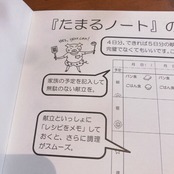 『たまるノート』の
4日分、できれば5日分の献
完璧でなくてもいいです。こ
家族の予定を記入して
無駄のない献立を。
献立といっしょに
「レシピをメモ」して
おくと、さらに調理
がスムーズ。
予定
朝
パン系
ごはん系
パン系
ごはん系
昼